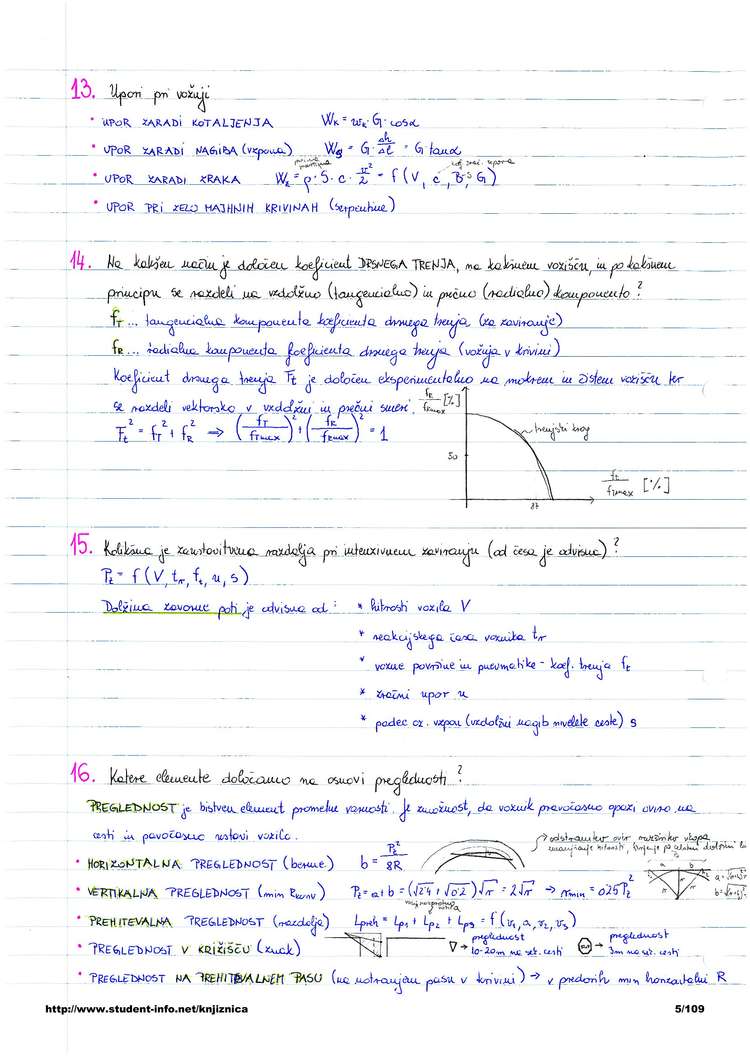 13. Upori pri vožnji
• UPOR ZARADI KOTALJENJA Wk = wk · G · cosα
• UPOR ZARADI NAGIBA (vzpona) Ws = G · Δh/Δl = G tanα
• UPOR ZARADI ZRAKA Wz = ρ · S · c · v²/2 = f (V, c, B·S, G)
• UPOR PRI ZELO MAJHNIH KRIVINAH (serpentine)
14. Na kakšen način je določen koeficient DRSNEGA TRENJA, na kakšnem vozišču, in po kakšnem
principu se razdeli na vzdolžno (tangencialno) in prečno (radialno) komponento?
fT ... tangencialna komponenta koeficienta drsnega trenja (za zaviranje)
fR ... radialna komponenta koeficienta drsnega trenja (vožnja v krivini)
Koeficient drsnega trenja Ft je določen eksperimentalno na mokrem in čistem vozišču ter
se razdeli vektorsko v vzdolžni in prečni smeri. fR/fRmax [%]
Ft² = fT² + fR² ⇒ (fT/fTmax)² + (fR/fRmax)² = 1
trenjski krog
50
ft/fTmax [%]
87
15. Kolikšna je zaustavitvena razdalja pri intenzivnem zaviranju (od česa je odvisna)?
Pz = f (V, tr, ft, u, s)
Dolžina zavorne poti je odvisna od: * hitrosti vozila V
* reakcijskega časa voznika tr
* vozne površine in pnevmatike - koef. trenja ft
* zračni upor u
* padec oz. vzpon (vzdolžni nagib nivelete ceste) s
16. Katere elemente določamo na osnovi preglednosti?
PREGLEDNOST je bistven element prometne varnosti. Je zmožnost, da voznik pravočasno opazi oviro na
cesti in pavočasno ustavi vozilo.
• HORIZONTALNA PREGLEDNOST (berme) b = Pz²/8R
• VERTIKALNA PREGLEDNOST (min Rkonv) Pz = a + b = (√2·1 + √0.2) √r = 2√r → rmin = 0.25Pz²
• PREHITEVALNA PREGLEDNOST (razdalja) Lpreh = Lp1 + Lp2 + Lp3 = f (v1, a, v2, v3)
• PREGLEDNOST V KRIŽIŠČU (znak) preglednost 10-20m na set. cesti preglednost 3m na set. cesti
• PREGLEDNOST NA PREHITEVALNEM PASU (na notranjem pasu v krivini) → v predorih min horizontalni R
http://www.student-info.net/knjiznica 5/109